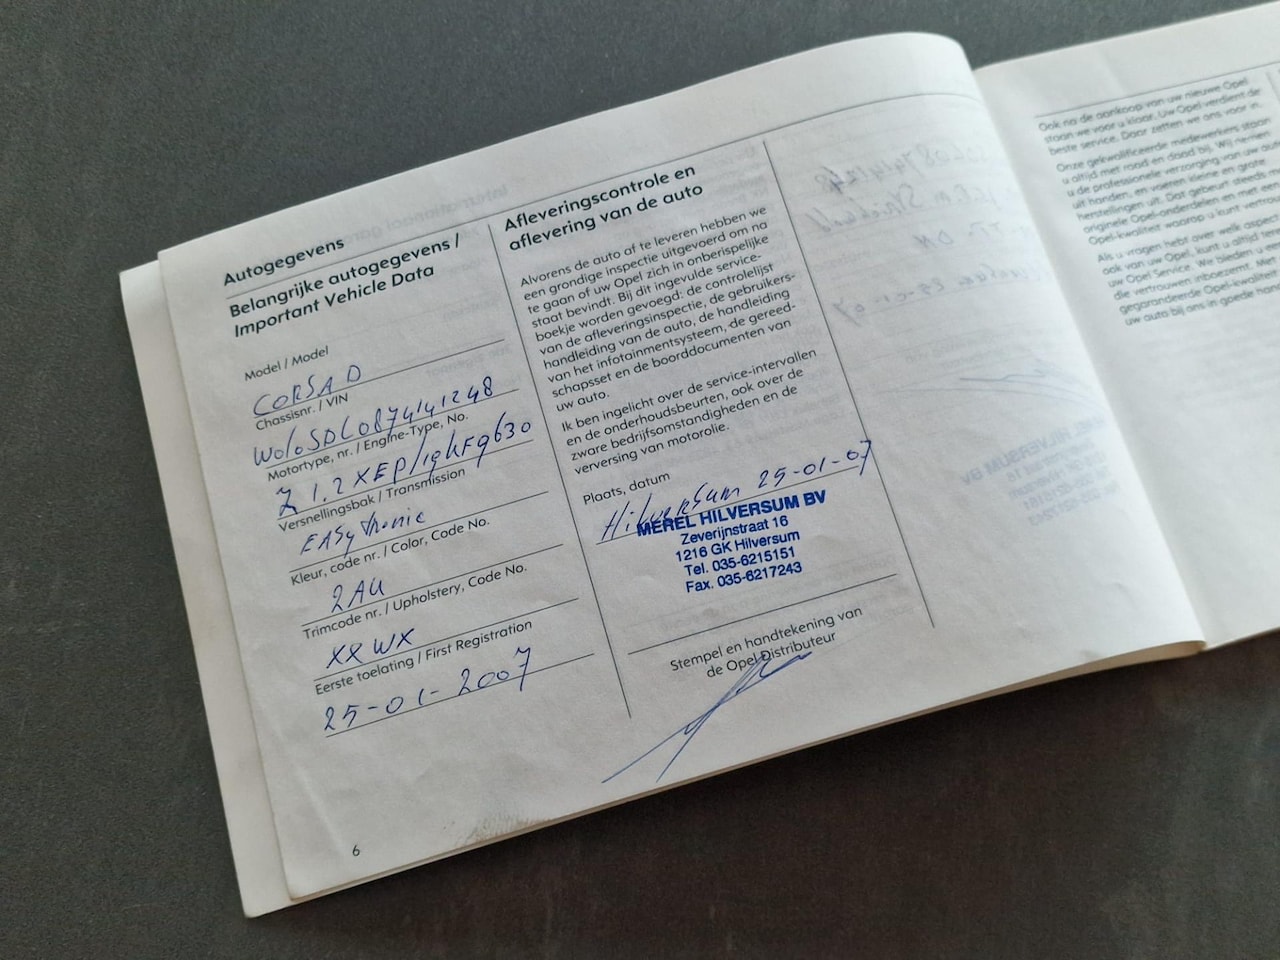 Autogegevens
Belangrijke autogegevens /
Important Vehicle Data
Model / Model
CORSA D
Chassisnr. / VIN
W0L0SDL0874141248
Motortype, nr. / Engine-Type, No.
Z 1.2 XEP/19HF9630
Versnellingsbak / Transmission
EASytronic
Kleur, code nr. / Color, Code No.
2AU
Trimcode nr. / Upholstery, Code No.
XRWX
Eerste toelating / First Registration
25-01-2007
6
Afleveringscontrole en
aflevering van de auto
Alvorens de auto af te leveren hebben we
een grondige inspectie uitgevoerd om na
te gaan of uw Opel zich in onberispelijke
staat bevindt. Bij dit ingevulde service-
boekje worden gevoegd: de controlelijst
van de afleveringsinspectie, de gebruikers-
handleiding van de auto, de handleiding
van het infotainmentsysteem, de gereed-
schapsset en de boorddocumenten van
uw auto.
Ik ben ingelicht over de service-intervallen
en de onderhoudsbeurten, ook over de
zware bedrijfsomstandigheden en de
verversing van motorolie.
Plaats, datum
Hilversum 25-01-07
MEREL HILVERSUM BV
Zeverijnstraat 16
1216 GK Hilversum
Tel. 035-6215151
Fax. 035-6217243
Stempel en handtekening van
de Opel Distributeur
Ook na de aankoop van uw nieuwe Opel
staan we voor u klaar. Uw Opel verdient de
beste service. Daar zetten we ons voor in.
Onze gekwalificeerde medewerkers staan
u altijd met raad en daad bij. Wij nemen
u de professionele verzorging van uw auto
uit handen, en voeren kleine en grote
herstellingen uit. Dat gebeurt steeds m
originele Opel-onderdelen en met een
Opel-kwaliteit waarop u kunt vertrou
Als u vragen hebt over welk aspect
ook van uw Opel, kunt u altijd ter
uw Opel Service. We bieden u een
die vertrouwen inboezemt. Met
gegarandeerde Opel-kwaliteit
uw auto bij ons in goede han